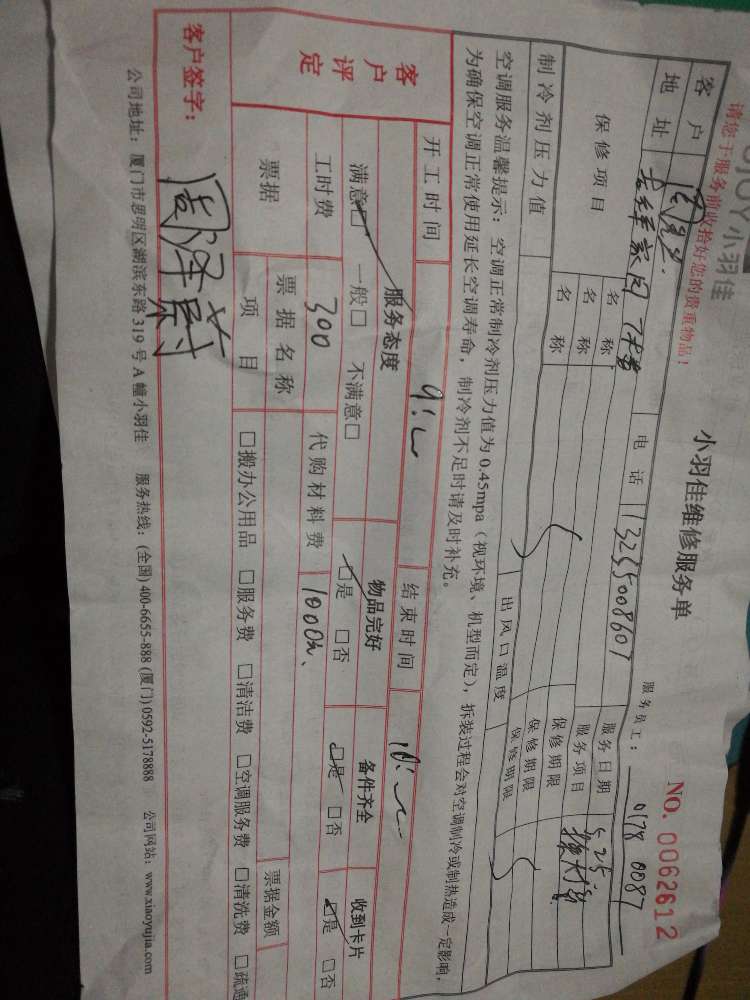 JOY小羽佳
请您于服务前收拾好您的贵重物品！
小羽佳维修服务单
NO. 0062612
服务员工： 0178 0087
客户
电话 13235008607
服务日期 5.25
地址
服务项目
保修项目
名称
保修期限
名称
保修期限
名称
保修期限
制冷剂压力值
出风口温度
空调服务温馨提示：空调正常制冷剂压力值为 0.45mpa（视环境、机型而定），拆装过程会对空调制冷或制热造成一定影响，
为确保空调正常使用延长空调寿命，制冷剂不足时请及时补充。
开工时间
结束时间
客户评定
服务态度 物品完好 备件齐全 收到卡片
满意□ 一般□ 不满意□ □是 □否 □是 □否 □是 □否
工时费 300 代购材料费 1000
票据 票据名称 票据金额
项目 □搬办公用品 □服务费 □清洁费 □空调服务费 □清洗费 □疏通
客户签字： 周泽尉
公司地址：厦门市思明区湖滨东路 319 号 A 幢小羽佳 服务热线：(全国) 400-6655-888 (厦门) 0592-5178888 公司网站：www.xiaoyujia.com